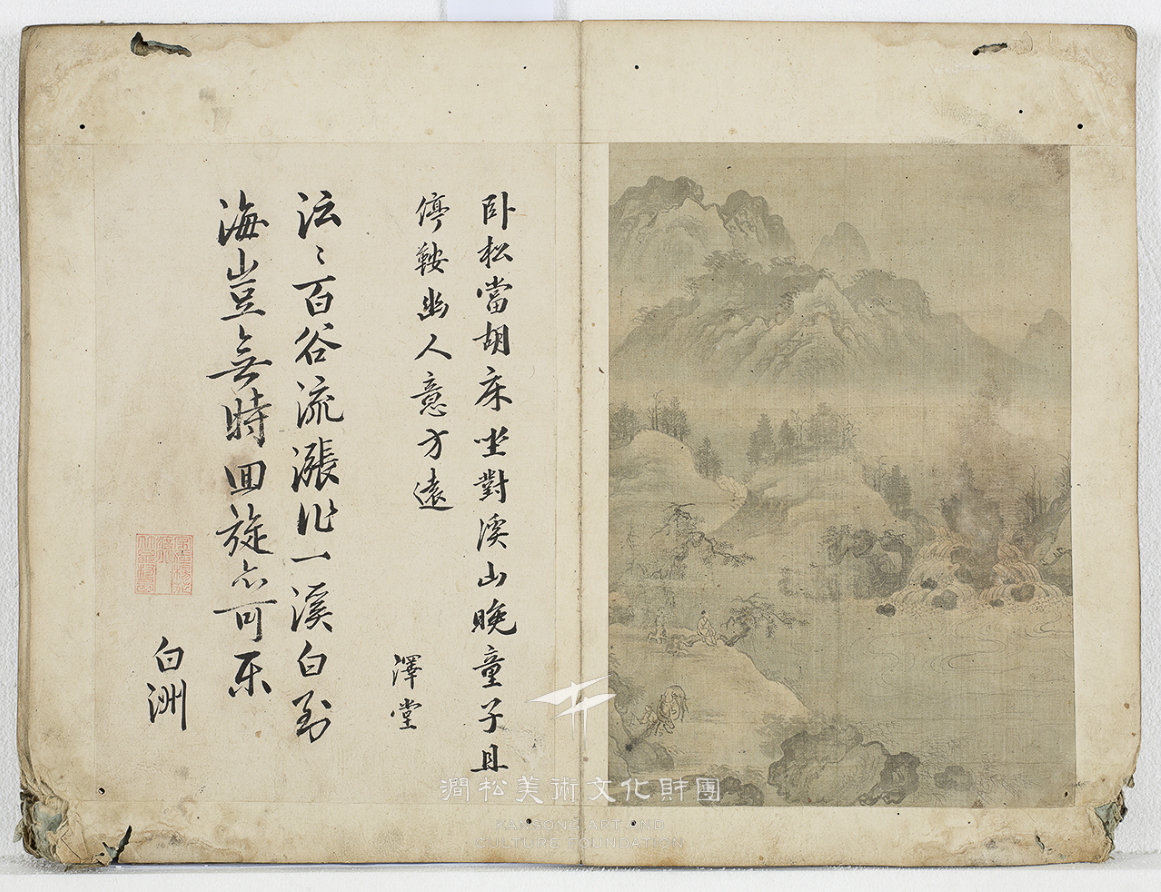 卧松當胡床坐對溪山晚童子且
停鞍幽人意方遠
澤堂
沄〻百谷流漲作一溪白到
海豈無時回旋亦可樂
白洲
澗松美術文化財團
KANSONG ART AND
CULTURE FOUNDATION